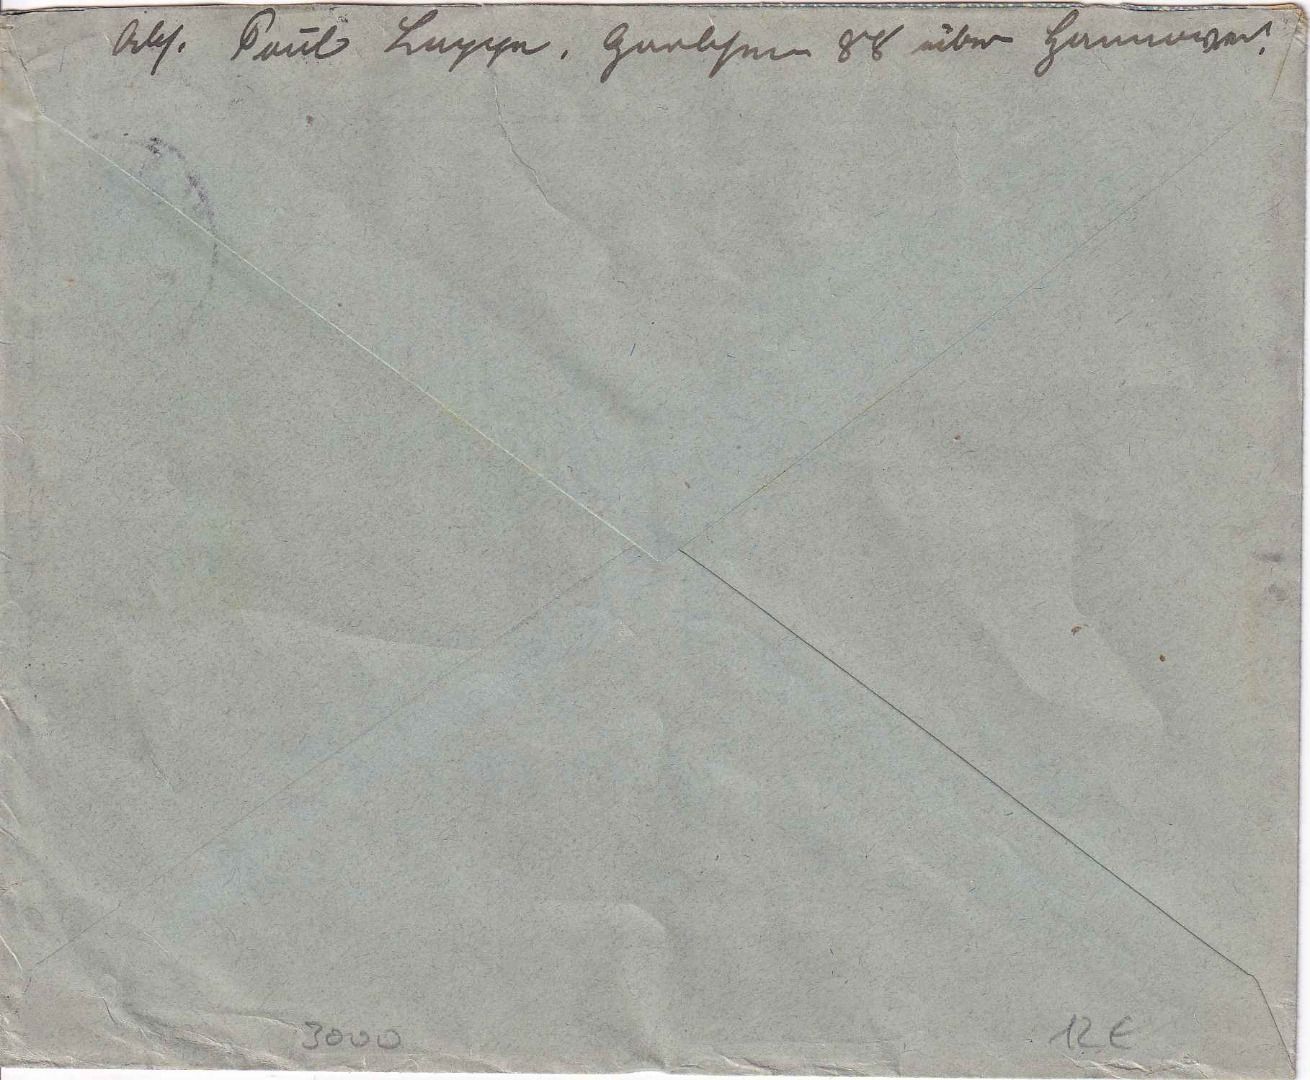 Abs. Paul Luppe, Garbsen 88 über Hannover.
3000
12 €